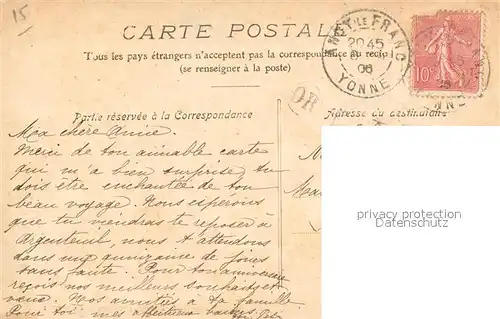 15
CARTE POSTALE
Tous les pays étrangers n'acceptent pas la correspondance au recto
(se renseigner à la poste)
ANCY-LE-FRANC
20 45
06
YONNE
10
OR
Partie réservée à la Correspondance
Adresse du destinataire
Ma chère Annie.
Merci de ton aimable carte
qui m'a bien surprise, tu
dois être enchantée de ton
beau voyage. Nous espérons
que tu viendras te reposer à
Argenteuil, nous t'attendons
dans une quinzaine de jours
sans faute. Pour ton anniversaire
reçois nos meilleurs souhaits et
vœux. Nos amitiés à la famille
Pour toi mes affectueux baisers
privacy protection
www.delcampe.net